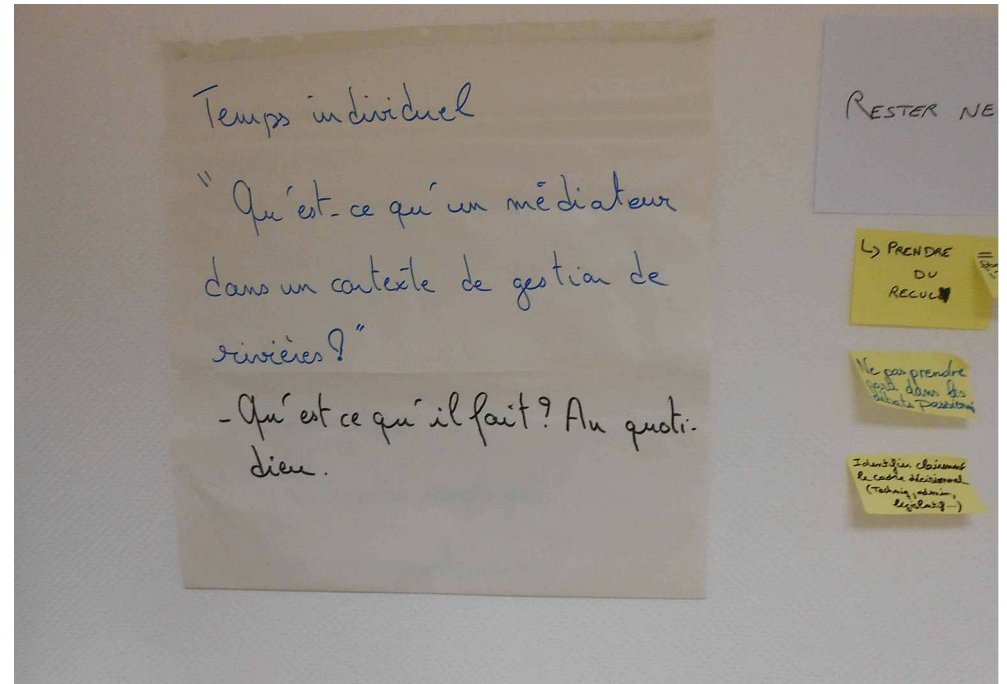 Temps individuel
"Qu'est-ce qu'un médiateur
dans un contexte de gestion de
rivières?"
- Qu'est ce qu'il fait? Au quoti-
dien.
RESTER NE
↳ PRENDRE
DU
RECUL
Ne pas prendre
parti dans les
débats passionn
Identifier clairement
le cadre décisionnel
(Techniq, admin,
législatif...)